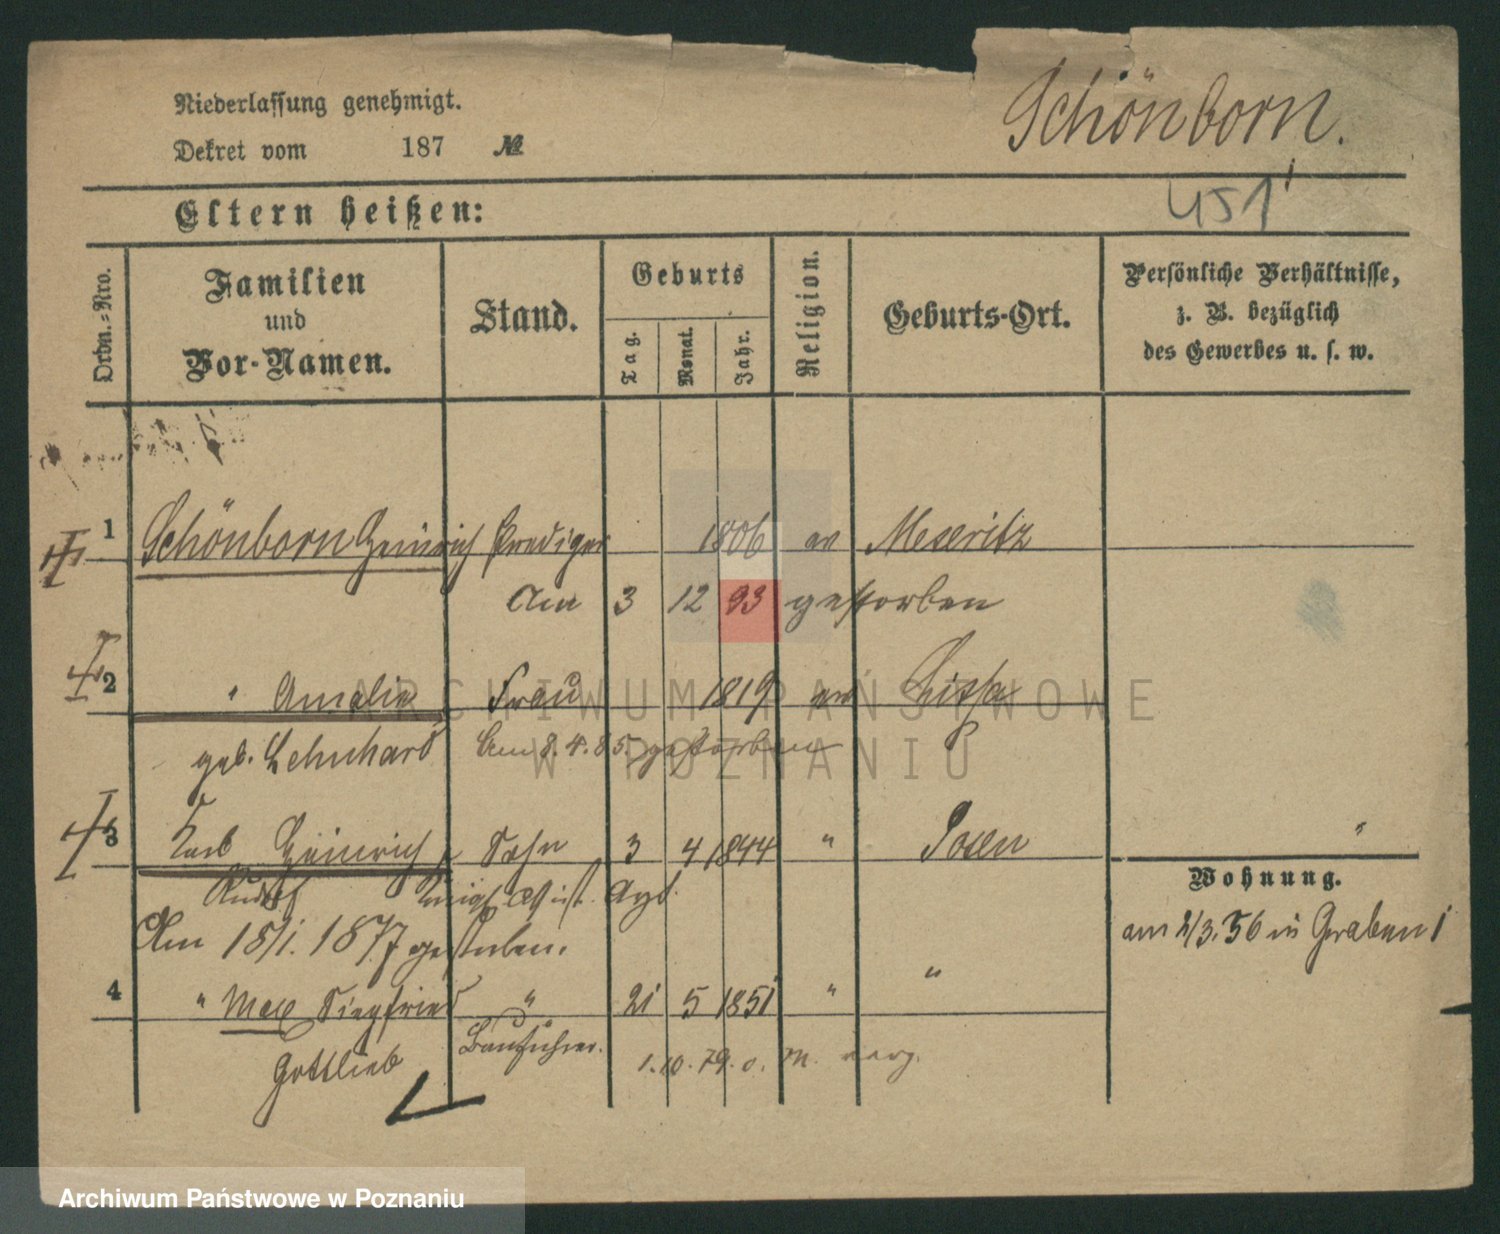 Niederlassung genehmigt.
Schönborn.
Dekret vom 187 №
451
Eltern heißen:
Ordn.-Nro.
Familien und Vor-Namen.
Stand.
Geburts
Tag.
Monat.
Jahr.
Religion.
Geburts-Ort.
Persönliche Verhältnisse, z. B. bezüglich des Gewerbes u. s. w.
1 Schönborn Heinrich Prediger 1806 ev Meseritz
Am 3 12 93 gestorben
2 " Amalie Frau 1819 ev Lissa
geb. Lehnhard Am 8.4.85. gestorben
3 Karl Heinrich Sohn 3 4 1844 " Posen "
Rudolf
Wohnung.
Am 18/1. 1877 gestorben.
am 2/3. 56 in Graben 1
4 " Max Siegfried " 21 5 1851 " "
Gottlieb Bauführer. 1.10.79. v. M. verz.
ARCHIWUM PAŃSTWOWE
W POZNANIU
Archiwum Państwowe w Poznaniu